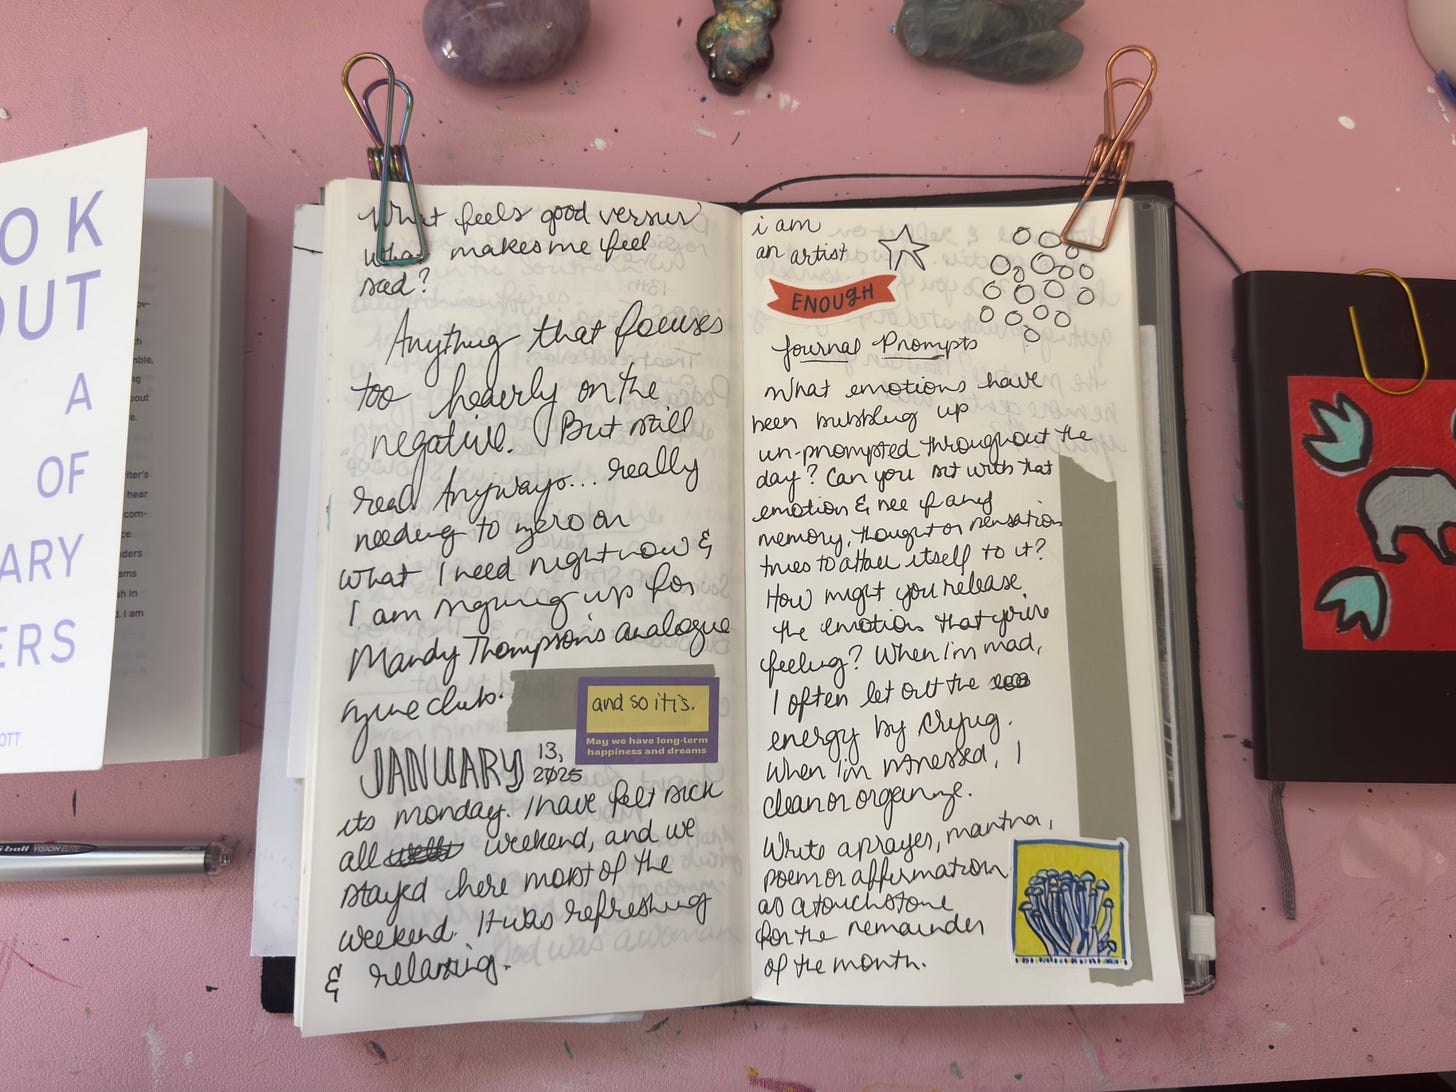 OOK
OUT
A
OF
ARY
ERS
OTT
What feels good versus
what makes me feel
sad?
Anything that focuses
too heavily on the
negative. But still
read. Anyways... really
needing to zero on
what I need right now &
I am signing up for
Mandy Thompson's analogue
zine club.
and so it is.
May we have long-term
happiness and dreams
JANUARY 13,
2025
its monday. I have felt sick
all weekend, and we
stayed here most of the
weekend. It was refreshing
& relaxing.
i am
an artist
ENOUGH
Journal Prompts
What emotions have
been bubbling up
un-prompted throughout the
day? Can you sit with that
emotion & see if any
memory, thought or sensation
tries to attach itself to it?
How might you release
the emotion that you're
feeling? When I'm mad,
I often let out the
energy by crying.
When I'm stressed, I
clean or organize.
Write a prayer, mantra,
poem or affirmation
as a touchstone
for the remainder
of the month.
uni-ball VISION ELITE